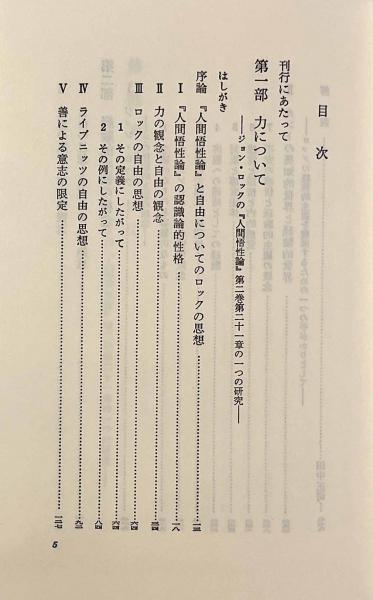 目次
刊行にあたって
第一部 力について
――ジョン・ロックの『人間悟性論』第二巻第二十一章の一つの研究――
はしがき
序論 『人間悟性論』と自由についてのロックの思想……一三
Ⅰ 『人間悟性論』の認識論的性格……一八
Ⅱ 力の観念と自由の観念……三四
Ⅲ ロックの自由の思想……六四
1 その定義にしたがって……六四
2 その例にしたがって……八四
Ⅳ ライプニッツの自由の思想……九三
Ⅴ 善による意志の限定……一三七
5